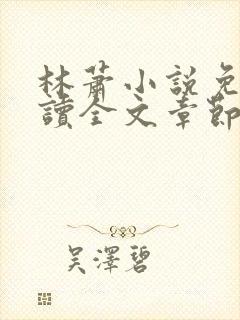 林蕭小說免
讀全文章節
吴澤碧